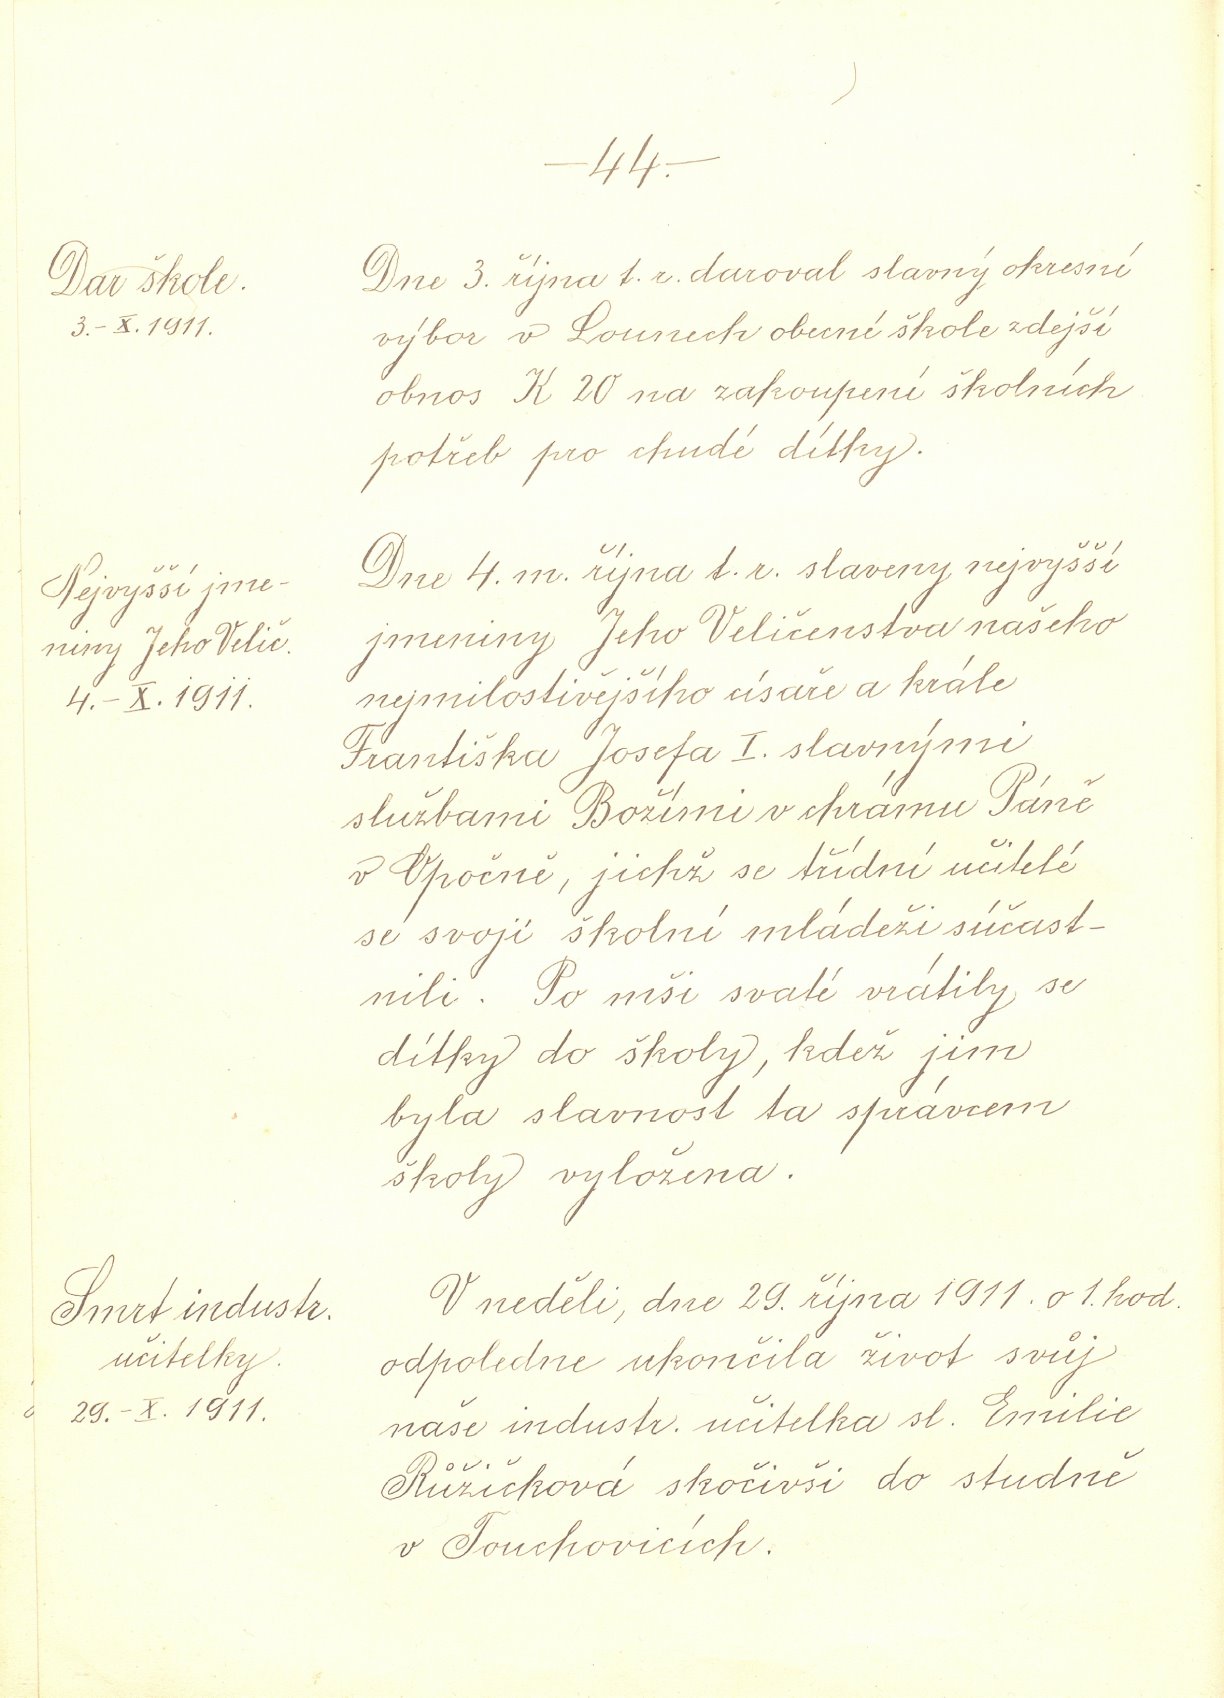 —44.—
Dar škole.
3.–X. 1911.
Dne 3. října t. r. daroval slavný okresní
výbor v Lounech obecné škole zdejší
obnos K 20 na zakoupení školních
potřeb pro chudé dítky.
Nejvyšší jme-
niny Jeho Velič.
4.–X. 1911.
Dne 4. m. října t. r. slaveny nejvyšší
jmeniny Jeho Veličenstva našeho
nejmilostivějšího císaře a krále
Františka Josefa I. slavnými
službami Božími v chrámu Páně
v Opočně, jichž se třídní učitelé
se svojí školní mládeži súčast-
nili. Po mši svaté vrátily se
dítky do školy, kdež jim
byla slavnost ta správcem
školy vyložena.
Smrt industr.
učitelky.
29.–X. 1911.
V neděli, dne 29. října 1911. o 1. hod.
odpoledne ukončila život svůj
naše industr. učitelka sl. Emilie
Růžičková skočivši do studně
v Touchovicích.